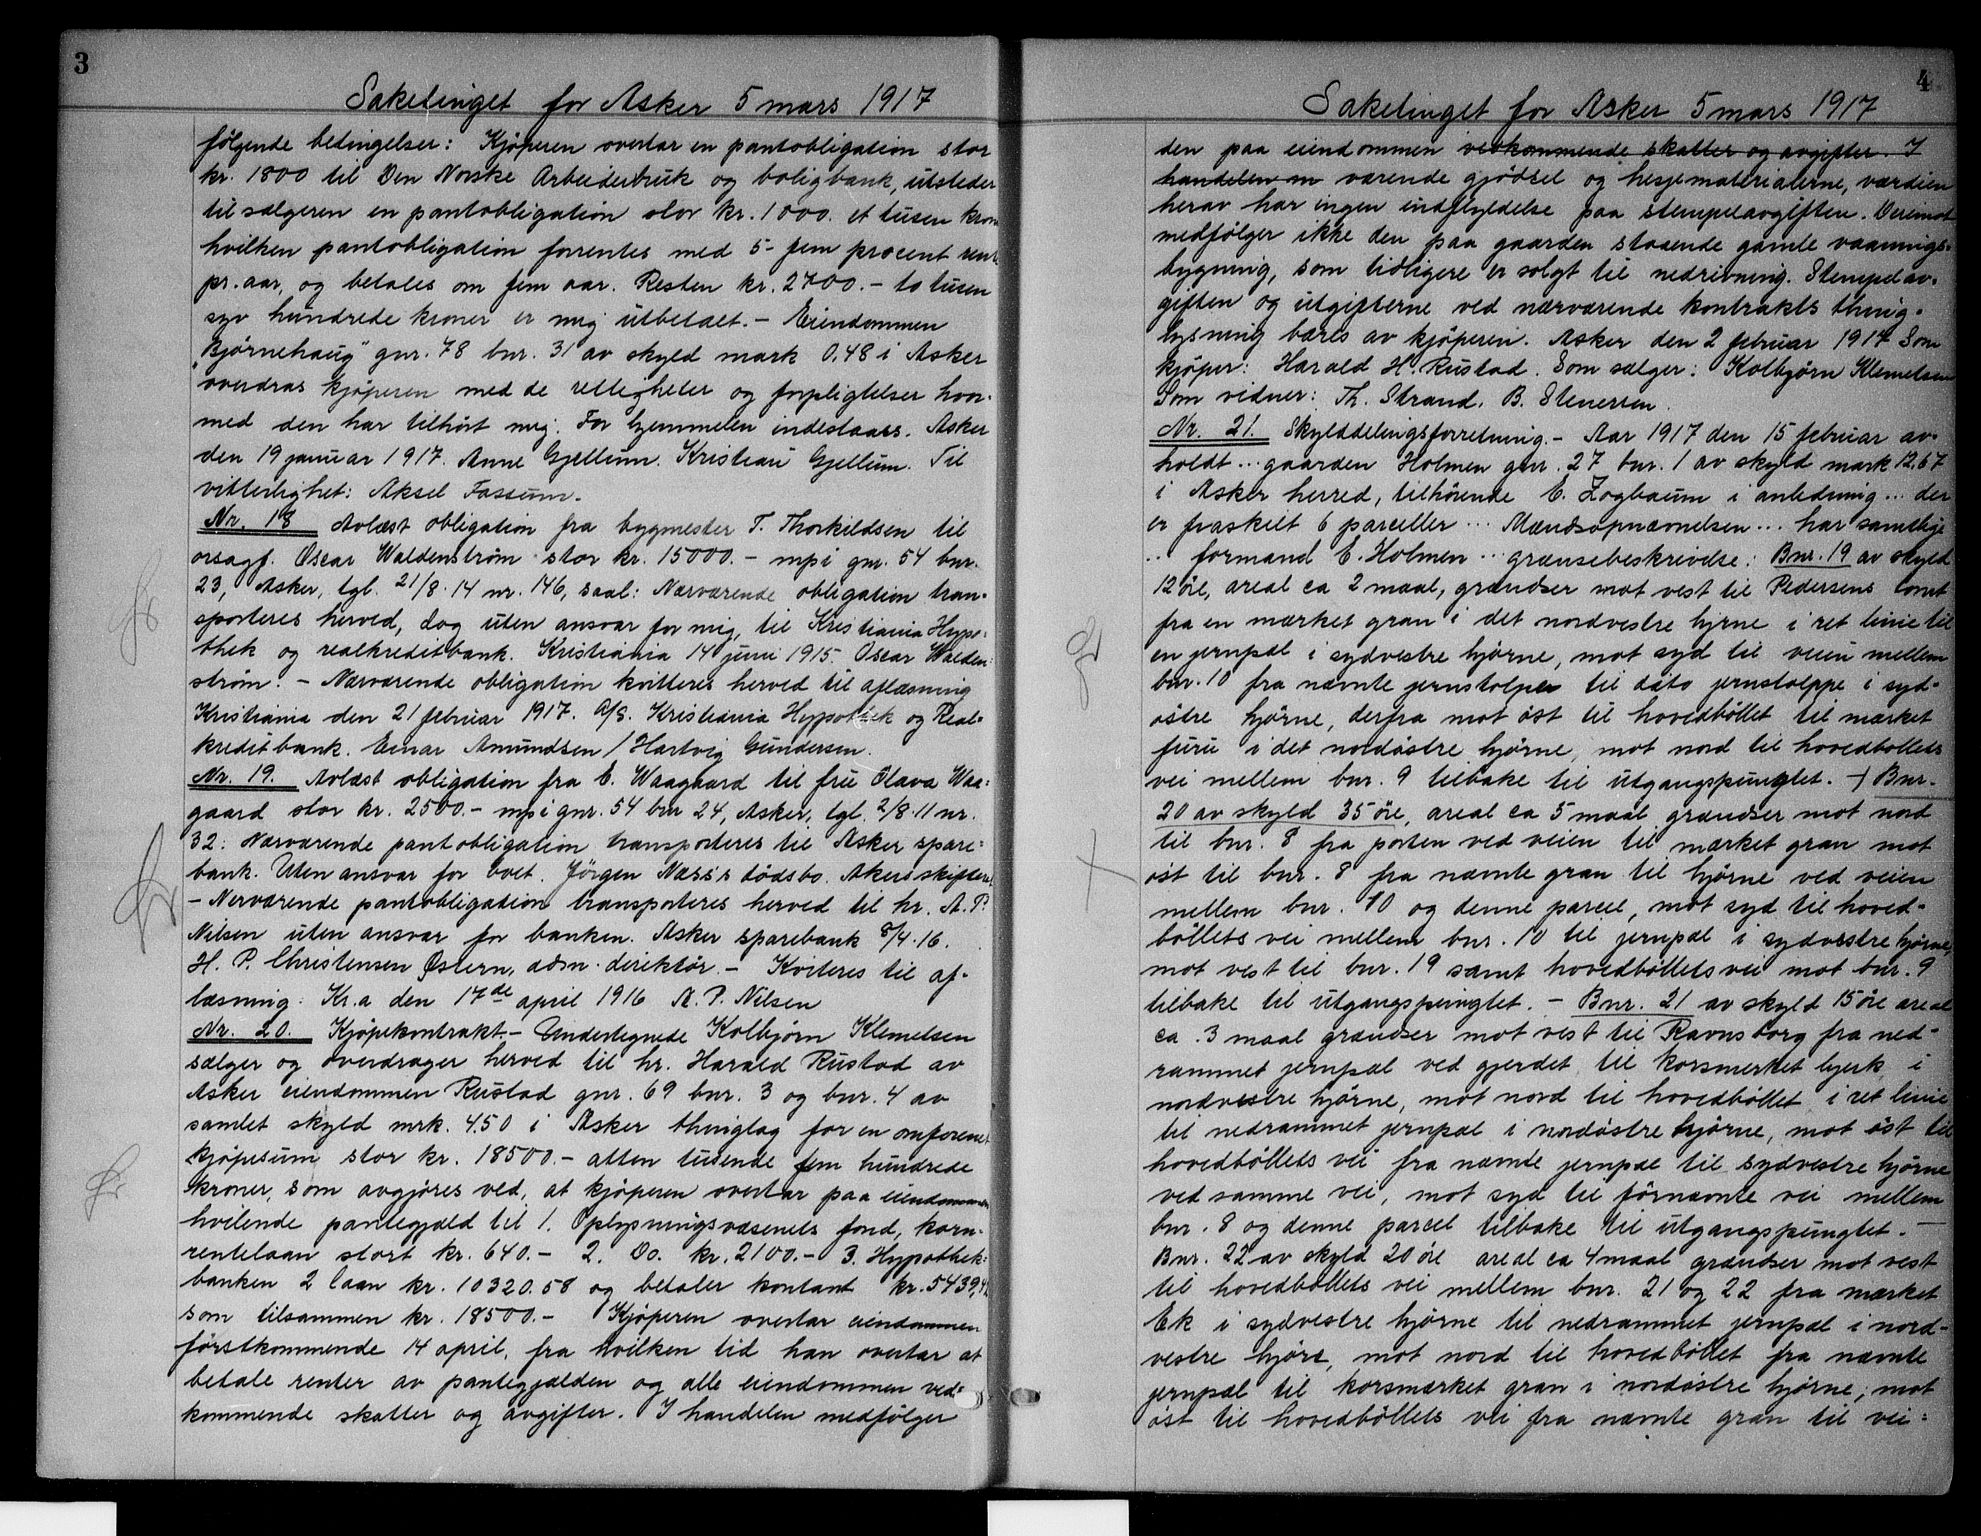 3
Saketinget for Asker 5 mars 1917
følgende betingelser: Kjøperen overtar en pantobligation stor
kr. 1800 til Den Norske Arbeiderbruk og boligbank, utsteder
til sælgeren en pantobligation stor kr. 1000. et tusen kron
hvilken pantobligation forrentes med 5- fem procent rent
pr. aar, og betales om fem aar. Resten kr. 2700.- to tusen
syv hundrede kroner er mig utbetalt. - Eiendommen
"Bjørnehaug" gnr. 78 bnr. 31 av skyld mark 0.48 i Asker
overdras kjøperen med de rettigheter og forpligtelser hvor-
med den har tilhørt mig. For hjemmelen indestaaes. Asker
den 19 januar 1917. Anne Gjellum. Kristian Gjellum. Til
vitterlighet: Aksel Fossum.
Nr. 18 Avlæst obligation fra bygmester T. Thorkildsen til
orsagf. Oscar Waldenstrøm stor kr. 15000.- mpi gnr. 54 bnr.
23, Asker, tgl. 21/8.14 nr. 146, saal: Nærværende obligation tran-
sporteres herved, dog uten ansvar for mig, til Kristiania Hypo-
thek og realkreditbank. Kristiania 14 juni 1915. Oscar Walden-
strøm. - Nærværende obligation kvitteres herved til aflæsning
Kristiania den 21 februar 1917. A/S. Kristiania Hypothek og Real-
kreditbank. Einar Amundsen / Hartvig Gundersen.
Nr. 19. Avlæst obligation fra E. Waagaard til fru Olava Waa-
gaard stor kr. 2500.- mpi gnr. 54 bnr 24, Asker, tgl. 2/8.11 nr.
32: Nærværende pantobligation transporteres til Asker spare-
bank. Uten ansvar for boet. Jörgen Næss's dødsbo. Akers skifteret
- Nærværende pantobligation transporteres herved til hr. A. P.
Nilsen uten ansvar for banken. Asker sparebank 8/4.16.
H. P. Christensen Østern, adm. direktør. - Kvitteres til af-
læsning: Kr.a den 17de april 1916 A. P. Nilsen
Nr. 20. Kjøpekontrakt. - Undertegnede Kolbjørn Klemetsen
sælger og overdrager herved til hr. Harald Rustad av
Asker eiendommen Rustad gnr. 69 bnr. 3 og bnr. 4 av
samlet skyld mrk. 4.50 i Asker thinglag for en omforenet
kjøpesum stor kr. 18500.- atten tusende fem hundrede
kroner, som avgjøres ved, at kjøperen overtar paa eiendommen
hvilende pantegjæld til 1. Oplysningsvæsenets fond, korn-
rentelaan stort kr. 640.- 2. Do. kr. 2100.- 3. Hypothek-
banken 2 laan kr. 10320.58 og betaler kontant kr. 5439,42
som tilsammen kr. 18500.- Kjøperen overtar eiendommen
førstkommende 14 april, fra hvilken tid han overtar at
betale renter av pantegjælden og alle eiendommen ved-
kommende skatter og avgifter. I handelen medfølger
4
Saketinget for Asker 5 mars 1917
den paa eiendommen vedkommende skatter og avgifter. I
handelen m værende gjødsel og hesjematerialerne, værdien
herav har ingen indflydelse paa stempelavgiften. Derimot
medfølger ikke den paa gaarden staaende gamle vaanings-
bygning, som tidligere er solgt til nedrivning. Stempelav-
giften og utgifterne ved nærværende kontrakts thing-
lysning bæres av kjøperen. Asker den 2 februar 1917 Som
kjøper: Harald H. Rustad. Som sælger: Kolbjørn Klemetsen
Som vidner: Th. Strand. B. Stenersen.
Nr. 21. Skylddelingsforretning. - Aar 1917 den 15 februar av-
holdt ... gaarden Holmen gnr. 27 bnr. 1 av skyld mark 12.67
i Asker herred, tilhørende E. Zogbaum i anledning ... der
er fraskilt 6 parceller ... Mændsopnævnelsen ... har samtlige
... formand E. Holmen ... grænsebeskrivelse: Bnr. 19 av skyld
12 øre, areal ca 2 maal, grændser mot vest til Pedersens tomt
fra en mærket gran i det nordvestre hjrne i ret linie til
en jernpæl i sydvestre hjørne, mot syd til veien mellem
bnr. 10 fra nævnte jernstolpe til dato jernstolppe i syd-
østre hjørne, derfra mot øst til hovedbøllet til mærket
furu i det nordøstre hjørne, mot nord til hovedbøllets
vei mellem bnr. 9 tilbake til utgangspungtet. -) Bnr.
20 av skyld 35 øre, areal ca 5 maal grændser mot nord
til bnr. 8 fra porten ved veien til mærket gran mot
øst til bnr. 8 fra nævnte gran til hjørne ved veien
mellem bnr. 10 og denne parcel, mot syd til hoved-
bøllets vei mellem bnr. 10 til jernpæl i sydvestre hjørne,
mot vest til bnr. 19 samt hovedbøllets vei mot bnr. 9
tilbake til utgangspungtet. - Bnr. 21 av skyld 15 øre areal
ca. 3 maal grændser mot vest til Ravnsborg fra ned-
rammet jernpæl ved gjerdet til korsmerket bjerk i
nordvestre hjørne, mot nord til hovedbøllet i ret linie
til nedrammet jernpæl i nordøstre hjørne, mot øst til
hovedbøllets vei fra nævnte jernpæl til sydvestre hjørne
ved samme vei, mot syd til førnævnte vei mellem
bnr. 8 og denne parcel tilbake til utgangspungtet. -
Bnr. 22 av skyld 20 øre areal ca 4 maal grændser mot vest
til hovedbøllets vei mellem bnr. 21 og 22 fra mærket
Ek i sydvestre hjørne til nedrammet jernpæl i nord-
vestre hjøre, mot nord til hovedbøllet fra nævnte
jernpæl til korsmærket gran i nordøstre hjørne, mot
øst til hovedbøllets vei fra nævnte gran til vei-